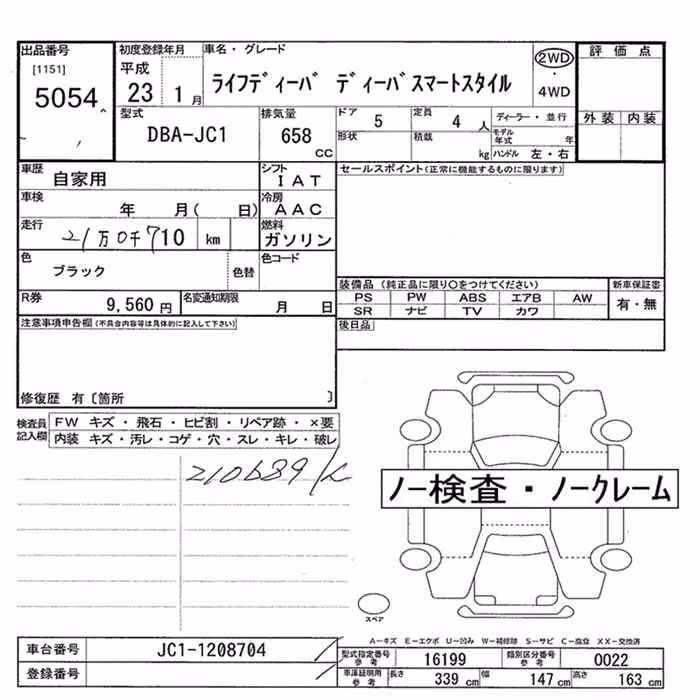 出品番号 初度登録年月 車名・グレード 2WD 評価点
[1151] 平成
5054 23 1月 ライフディーバ ディーバスマートスタイル ・ 4WD
型式 排気量 ドア 5 定員 4人 ディーラー・並行 外装 内装
DBA-JC1 658 cc 形状 積載 kg モデル年式 年
ハンドル 左・右
車歴 自家用 シフト IAT セールスポイント(正常に機能するものに限ります)
車検 年 月( 日) 冷房 AAC
走行 21万0千710 km 燃料 ガソリン
色 ブラック 色替 色コード
装備品 (純正品に限り〇をつけてください) 新車保証書
R券 9,560円 名変通知期限 月 日 PS PW ABS エアB AW 有・無
SR ナビ TV カワ
注意事項申告欄(不具合内容等は具体的に記入して下さい) 後日品
修復歴 有〔箇所 〕
検査員記入欄 FW キズ・飛石・ヒビ割・リペア跡・×要
内装 キズ・汚レ・コゲ・穴・スレ・キレ・破レ
210689K
ノー検査・ノークレーム
スペア
A-キズ E-エクボ U-凹み W-補修跡 S-サビ C-腐食 XX-交換済
車台番号 JC1-1208704 型式指定番号 参考 16199 類別区分番号 参考 0022
登録番号 車庫証明用 参考 長さ 339 cm 幅 147 cm 高さ 163 cm